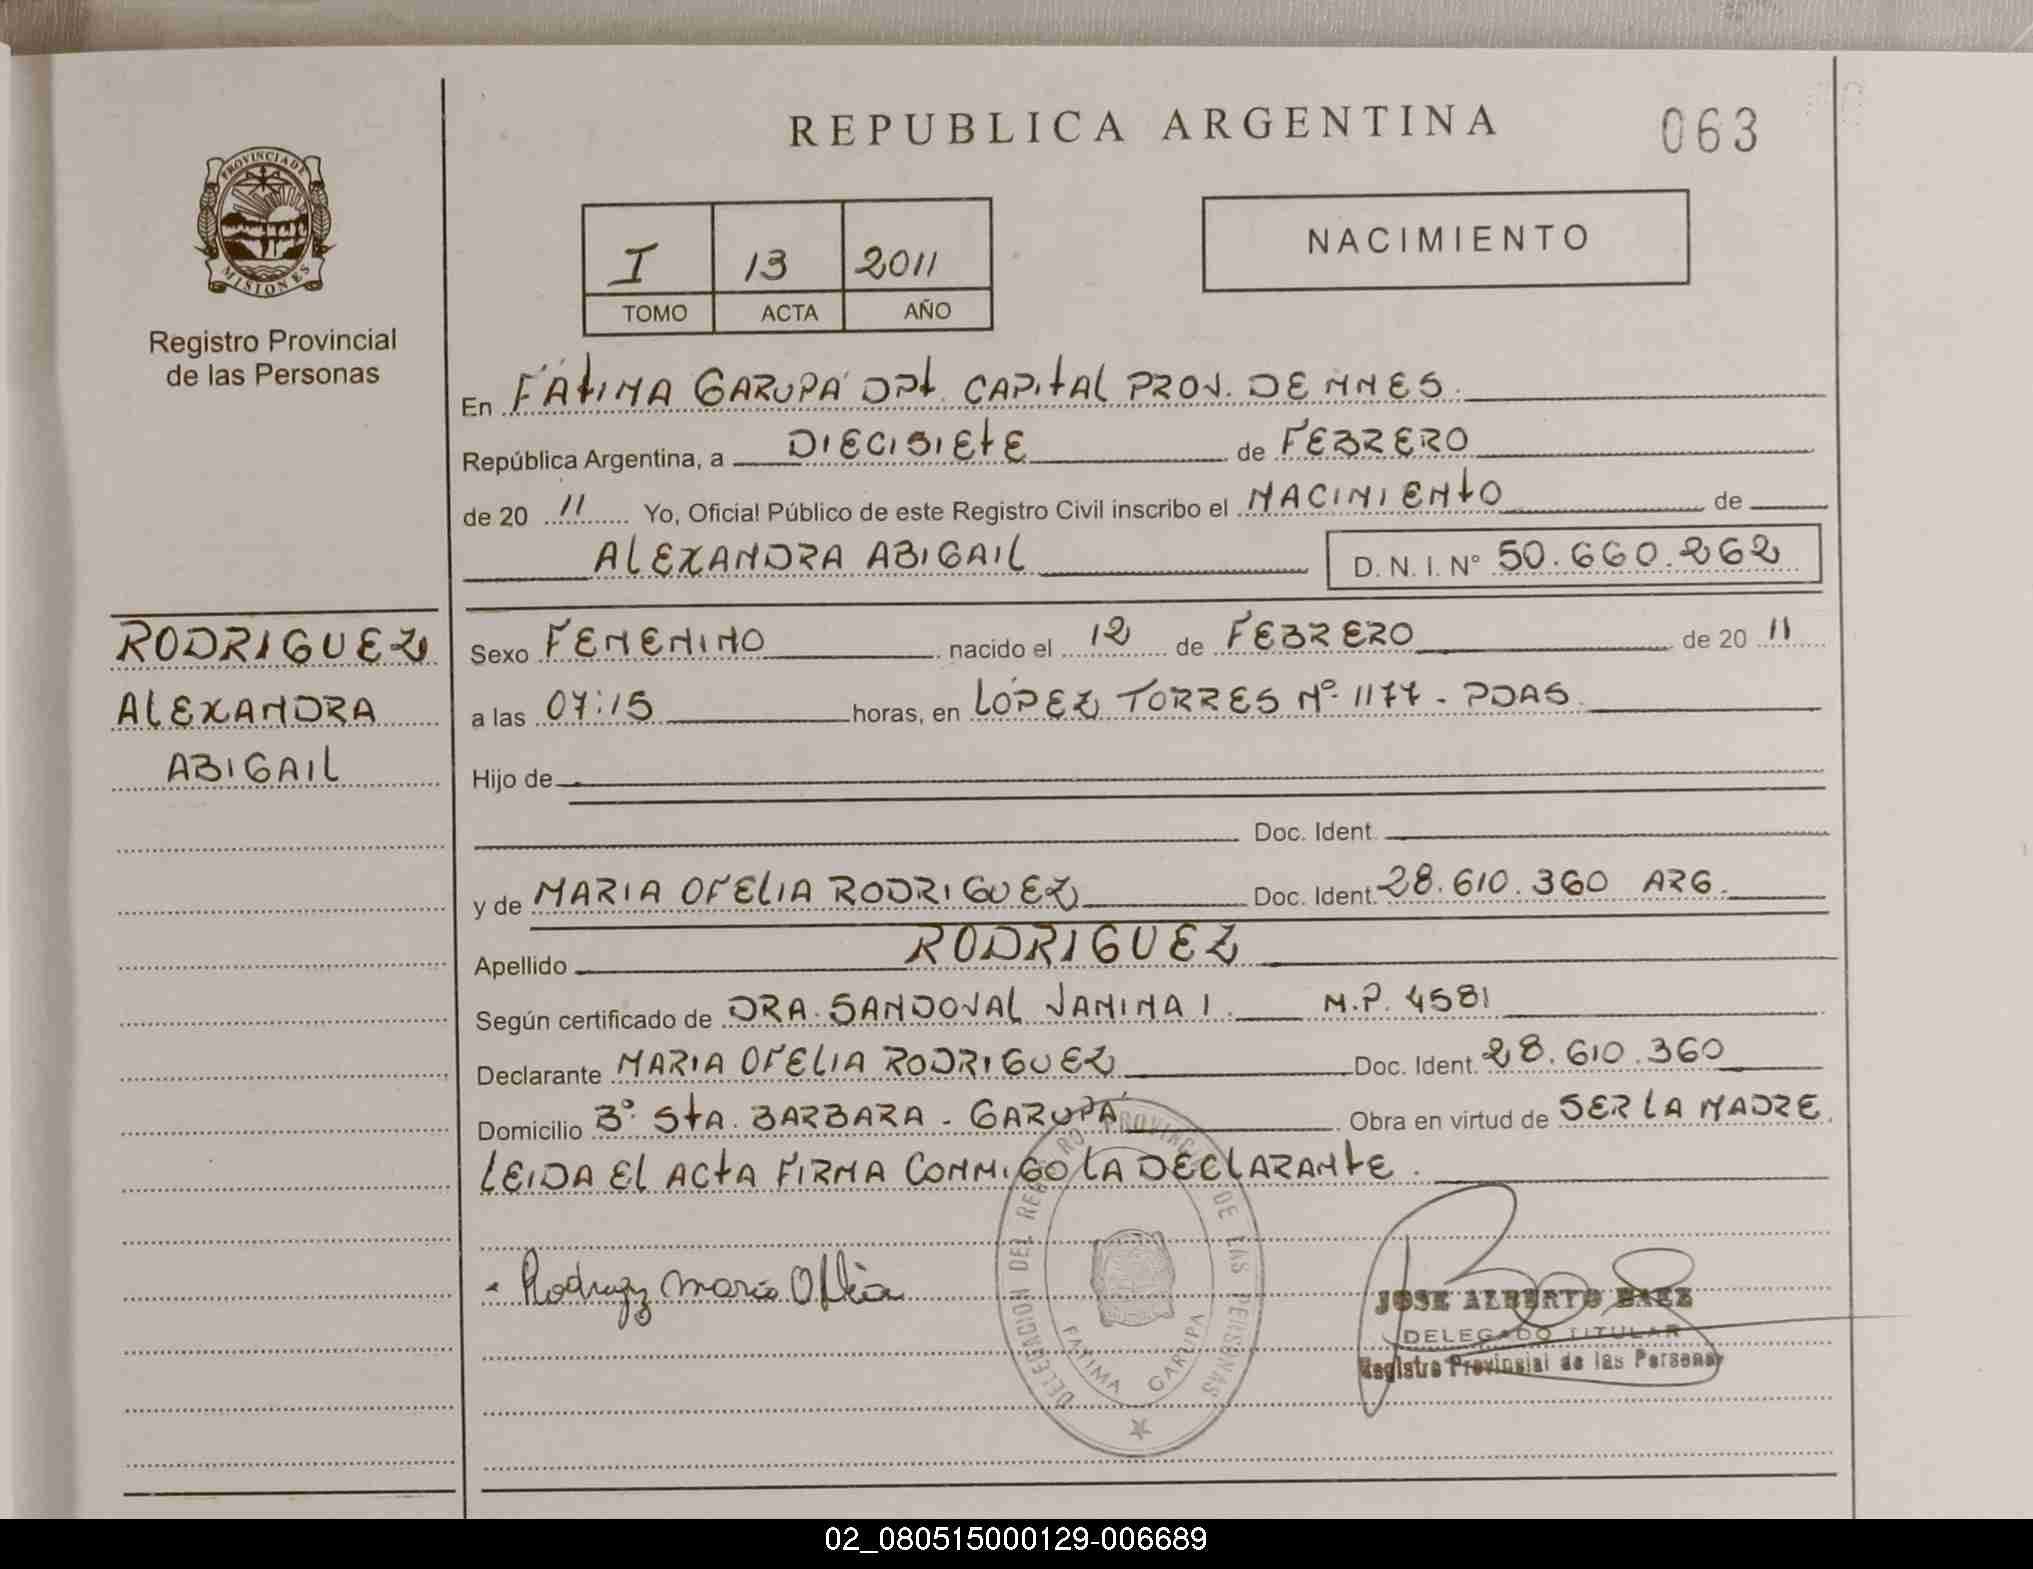 REPUBLICA ARGENTINA
063
PROVINCIA DE
MISIONES
Registro Provincial
de las Personas
I 13 2011
TOMO ACTA AÑO
NACIMIENTO
En FÁtiMA GARUPÁ DPt. CAPItAL PROV. DE MNES.
República Argentina, a DIECISIEtE de FEBRERO
de 20 11 Yo, Oficial Público de este Registro Civil inscribo el NACIMIENtO de
ALEXANDRA ABIGAIL D. N. I. Nº 50.660.262
RODRIGUEZ
ALEXANDRA
ABIGAIL
Sexo FEMENINO nacido el 12 de FEBRERO de 20 11
a las 07:15 horas, en LÓPEZ TORRES Nº 1177 - PDAS.
Hijo de
Doc. Ident.
y de MARIA OFELIA RODRIGUEZ Doc. Ident. 28.610.360 ARG.
Apellido RODRIGUEZ
Según certificado de DRA. SANDOVAL JANINA I. M.P. 4581
Declarante MARIA OFELIA RODRIGUEZ Doc. Ident. 28.610.360
Domicilio Bº StA. BARBARA - GARUPÁ Obra en virtud de SER LA MADRE.
LEIDA El ACtA FIRMA CONMIGO LA DECLARANtE.
Rodriguez Maria Ofelia
DELEGACION DEL REGISTRO PROVINCIAL DE LAS PERSONAS
FATIMA GARUPA
JOSE ALBERTO BAEZ
DELEGADO TITULAR
Registro Provincial de las Personas
02_080515000129-006689